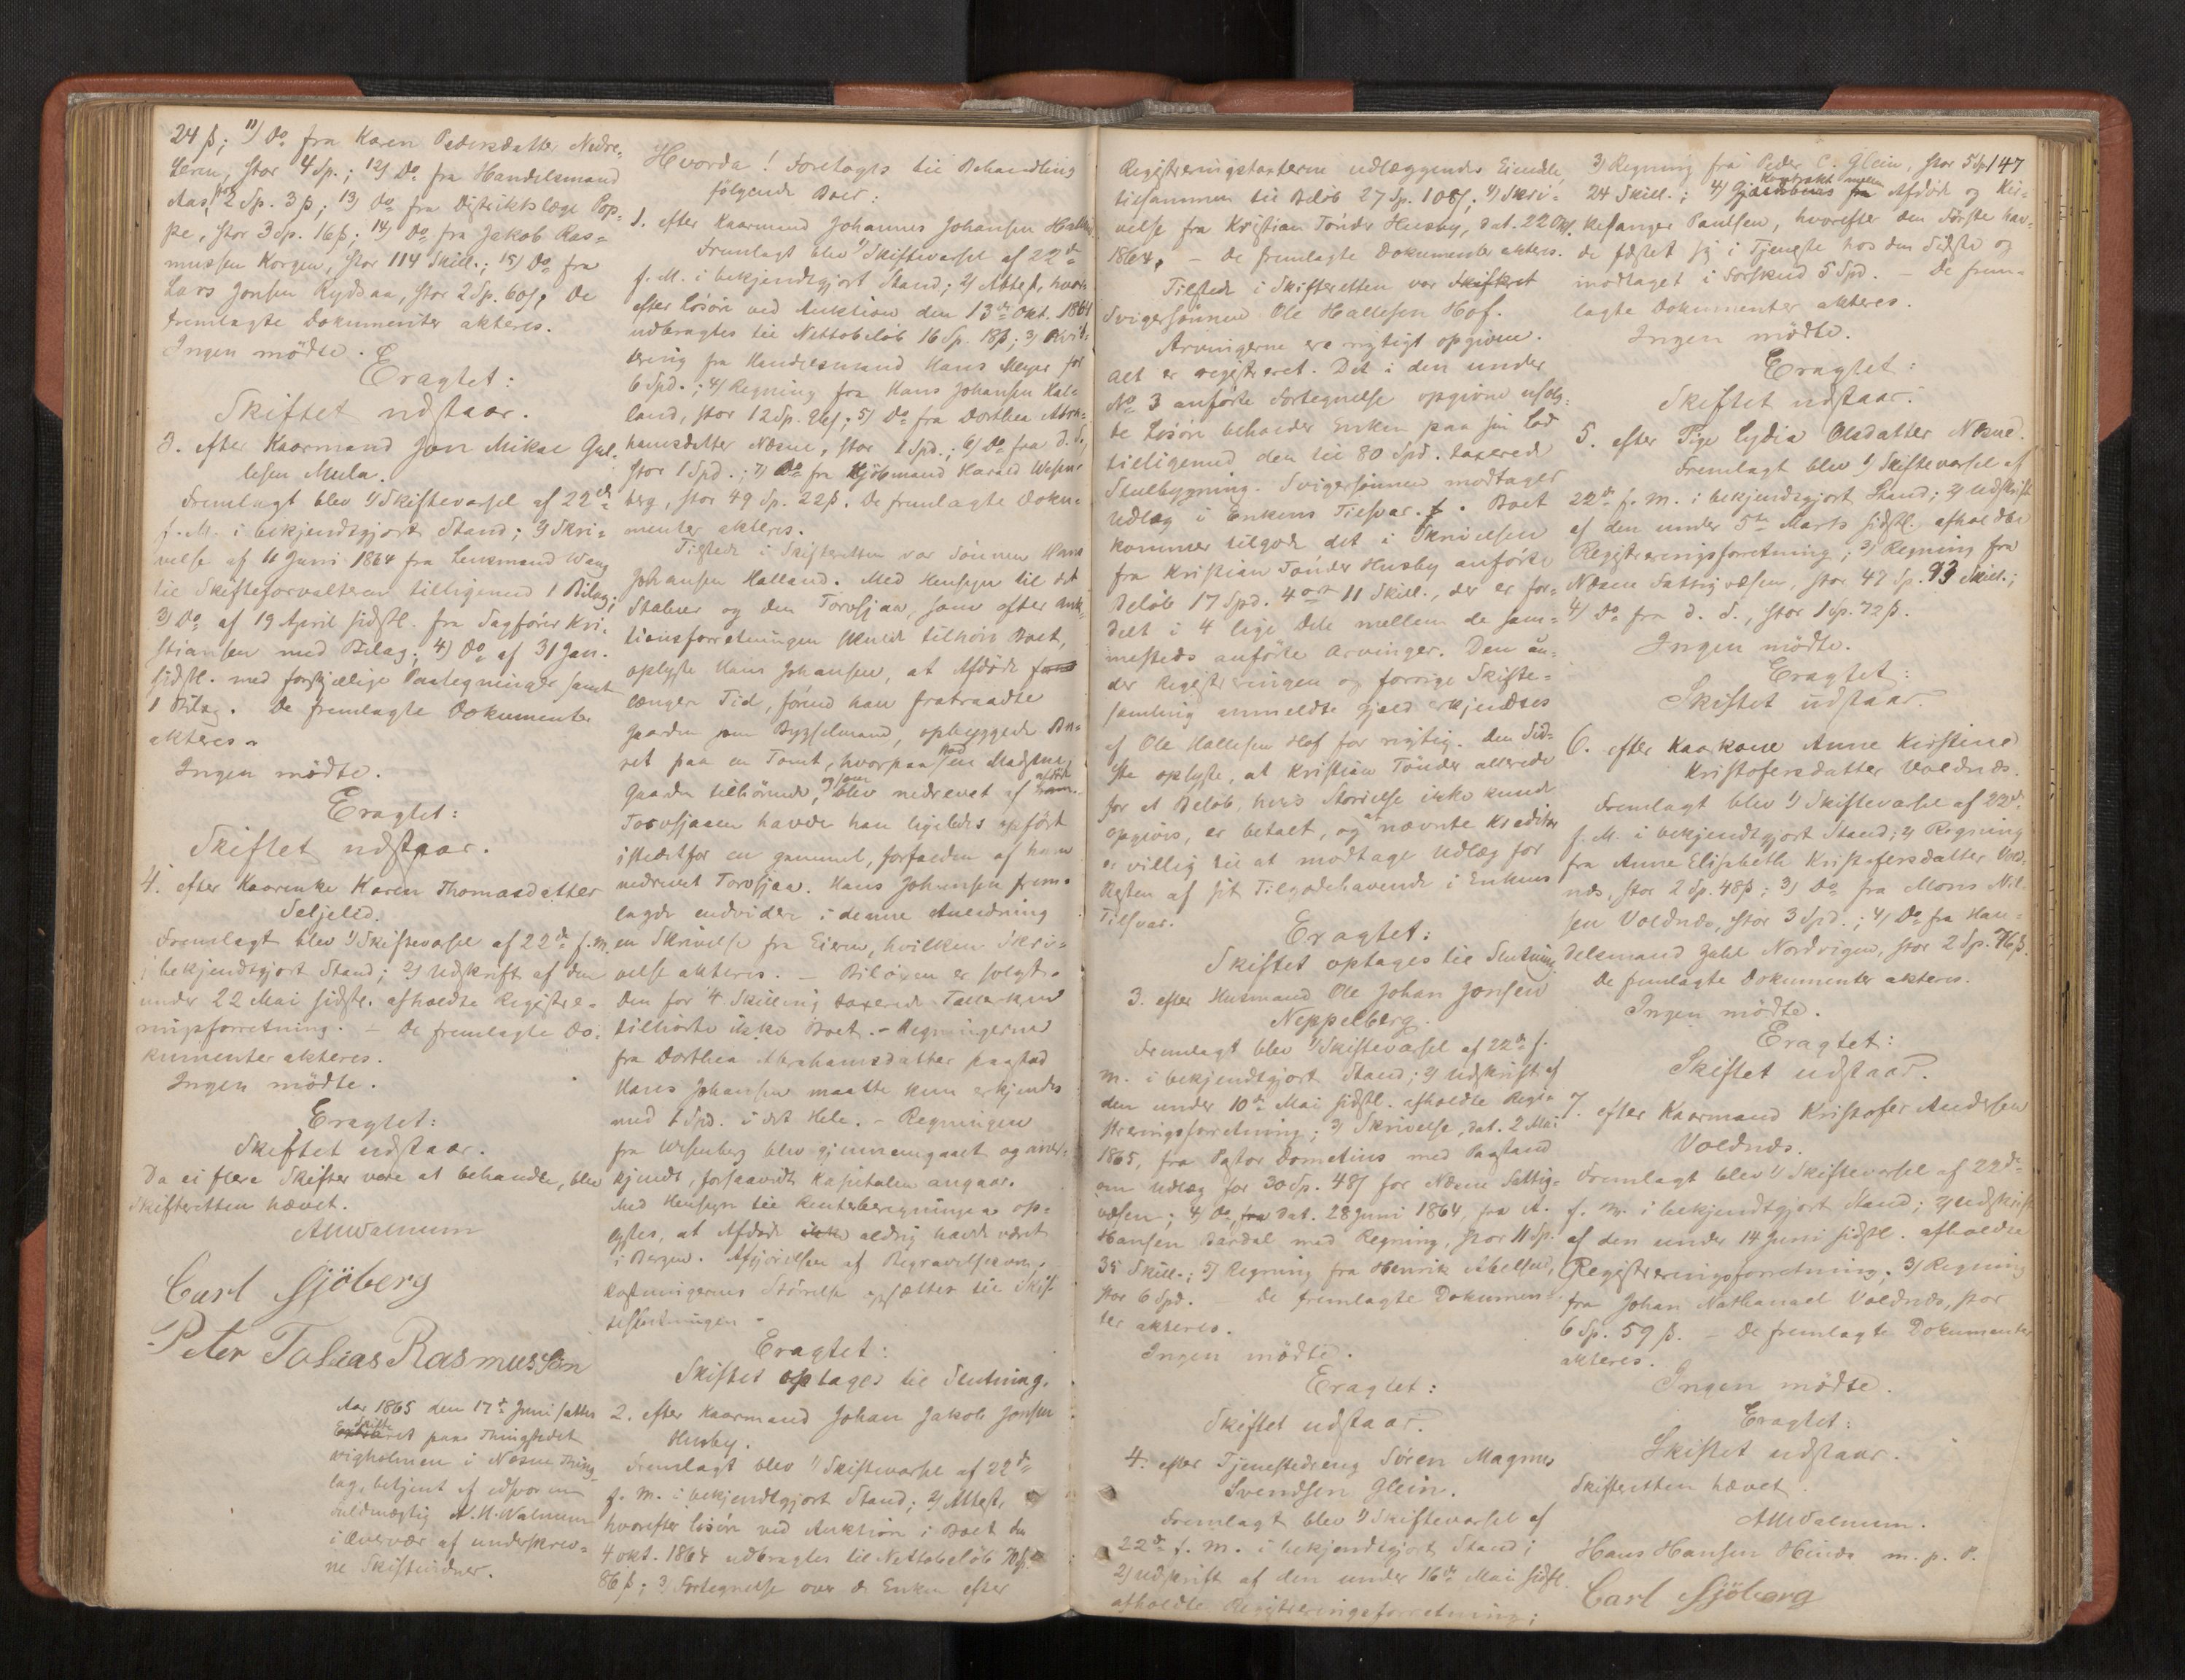 24 ß; 11) Do fra Karen Pedersdatter Nedre-
leren, stor 4 Sp.; 12) Do fra Handelsmand
Aas, stor 2 Sp. 3 ß; 13) Do fra Distriktslæge Pop-
pe, stor 3 Sp. 16 ß; 14) Do fra Jakob Ras-
mussen Korgen, stor 114 Skill.; 15) Do fra
Lars Jonsen Rydsaa, stor 2 Sp. 60 ß. De
fremlagte Dokumenter akteres.
Ingen mödte.
Eragtet:
Skiftet udstaar.
3. efter Kaarmand Jon Mikal Gul-
lesen Mula.
Fremlagt blev 1) Skiftevarsel af 22de
f. M. i bekjendtgjort Stand; 2) Skri-
velse af 11 Juni 1864 fra Lensmand Wang
til Skifteforvalteren tilligemed 1 Bilag;
3) Do af 19 April sidstl. fra Sagförer Kri-
stiansen med Bilag; 4) Do af 31 Jan.
sidstl. med forskjælige Paategninger samt
1 Bilag. De fremlagte Dokumenter
akteres.
Ingen mödte.
Eragtet:
Skiftet udstaar.
4. efter Kaarenke Karen Thomasdatter
Seljelid.
Fremlagt blev 1) Skiftevarsel af 22de f. M.
i bekjendtgjort Stand; 2) Udskrift af den
under 22 Mai sidstl. afholdte Registre-
ringsforretning. – De fremlagte Do-
kumenter akteres.
Ingen mödte.
Eragtet:
Skiftet udstaar.
Da ei flere Skifter vare at behandle, blev
Skifteretten hævet.
AMWalnum
Carl Sjöberg
Peter Tobias Rasmussen
Aar 1865 den 17de Juni sattes
Skifteret paa Thingstedet
Vigholmen i Næsne Thing-
lag, betjent af edsvoren
Fuldmægtig A. M. Walnum
i Overvær af underskrev-
ne Skiftevidner.
Hvorda! Foretoges til Behandling
følgende Boer:
1. efter Kaarmand Johannes Johansen Halland
Fremlagt blev 1) Skiftevarsel af 22de
f. M. i bekjendtgjort Stand; 2) Attest, hvor-
efter Lösöre ved Auktion den 13de Okt. 1864
udbragtes til Nettobelöb 16 Sp. 18 ß; 3) Kvit-
tering fra Handelsmand Hans Meyer for
6 Spd.; 4) Regning fra Hans Johansen Hal-
land, stor 12 Sp. 96 ß; 5) Do fra Dorthea Abra-
hamsdatter Næsne, stor 1 Spd.; 6) Do fra d. S.,
stor 1 Spd.; 7) Do fra Kjöbmand Harald Wesen-
berg, stor 49 Sp. 22 ß. De fremlagte Doku-
menter akteres.
Tilstede i Skifteretten var Sönnen Hans
Johansen Halland. Med Hensyn til det
Stabur og den Torvsjaa, som efter Auk-
tionsforretningen skulde tilhøre Boet,
oplyste Hans Johansen, at Afdöde
længere Tid, förend han fratraadte
Gaarden som Bygselmand, opbyggede Bu-
ret paa en Tomt, hvorpaa stod en Madstue
Gaarden tilhörende, og som blev nedrevet af Afdöde.
Torvsjaaen havde han ligeledes opfört
istedetfor en gammel, forfalden af ham
nedrevet Torvsjaa. Hans Johansen frem-
lagde endvidere i denne Anledning
en Skrivelse fra Eieren, hvilken Skri-
velse akteres. –
Den for 4 Skilling taxerede Tallerken
tilhörte ikke Boet. – Regningerne
fra Dorthea Abrahamsdatter paastod
Hans Johansen maatte kun erkjendes
med 1 Spd. i det Hele. – Regningen
fra Wesenberg blev gjennemgaaet og aner-
kjendt, forsaavidt Kapitalen angaar.
Med Hensyn til Renteberegningen op-
lystes, at Afdöde aldrig havde været
i Bergen. Afgjörelsen af Begravelsesom-
kostningernes Störrelse opsættes til Skif-
teslutningen.
Eragtet:
Skiftet optages til Slutning.
2. efter Kaarmand Johan Jakob Jonsen
Husby.
Fremlagt blev 1) Skiftevarsel af 22de
f. M. i bekjendtgjort Stand; 2) Attest,
hvorefter Lösöre ved Auktion i Boet den
4 Okt. 1864 udbragtes til Nettobelöb
86 ß; 3) Fortegnelse over de Enken efter
Registreringstaxterne udlæggende Eiendele,
tilsammen til Belöb 27 Sp. 108 ß; 4) Skri-
velse fra Kristian Tönder Husby, dat. 22 Okt.
1864. – De fremlagte Dokumenter akteres.
Tilstede i Skifteretten var
Svigersönnen Ole Hallesen Hof.
Arvingerne ere rigtigt opgivne.
Alt er registreret. Det i den under
No 3 anförte Fortegnelse opgivne usolg-
te Lösöre beholder Enken paa sin Lod
tilligemed den til 80 Spd. taxerede
Stuebygning. Svigersönnen modtager
Udlæg i Enkens Tilsvar. Boet
kommer tilgode det i Skrivelsen
fra Kristian Tönder Husby anförte
Belöb 17 Spd. 4 ort 11 Skill., der er for-
delt i 4 lige Dele mellem de sam-
mesteds anförte Arvinger. Den un-
der Registreringen og forrige Skifte-
samling anmeldte Gjæld erkjendtes
af Ole Hallesen Hof for rigtig. Den Sid-
ste oplyste, at Kristian Tönder allerede
for et Belöb, hvis Störrelse ikke kunde
opgives, er betalt, og at nævnte Kreditor
er villig til at modtage Udlæg for
Resten af sit Tilgodehavende i Enkens
Tilsvar.
Eragtet:
Skiftet optages til Slutning.
3. efter Husmand Ole Johan Jonsen
Neppelberg.
Fremlagt blev 1) Skiftevarsel af 22de f.
M. i bekjendtgjort Stand; 2) Udskrift af
den under 10de Mai sidstl. afholdte Regi-
streringsforretning; 3) Skrivelse, dat. 2 Mai
1865, fra Pastor Dometius med Paastand
om Udlæg for 30 Sp. 48 ß for Næsne Fattig-
væsen; 4) Do, fra dat. 28 Juni 1864, fra A.
Hansen Bardal med Regning, stor 11 Sp.
35 Skill.; 5) Regning fra Henrik Abelsen,
stor 6 Spd. De fremlagte Dokumen-
ter akteres.
Ingen mödte.
Eragtet:
Skiftet udstaar.
4. efter Tjenestedreng Sören Magnus
Svendsen Glein.
Fremlagt blev 1) Skiftevarsel af
22de f. M. i bekjendtgjort Stand;
2) Udskrift af den under 16de Mai sidstl.
afholdte Registreringsforretning;
147
3) Regning fra Peder C. Glein, stor 5 Sp.
24 Skill.; 4) Kontrakt mellem Afdöde og Ki-
kesanger Paulsen, hvorefter den Förste hav-
de fæstet sig i Tjeneste hos den Sidste og
modtaget i Forskud 5 Spd. – De frem-
lagte Dokumenter akteres.
Ingen mödte.
Eragtet:
Skiftet udstaar.
5. efter Pige Lydia Olsdatter Næsne.
Fremlagt blev 1) Skiftevarsel af
22de f. M. i bekjendtgjort Stand; 2) Udskrift
af den under 5te Marts sidstl. afholdte
Registreringsforretning; 3) Regning fra
Næsne Fattigvæsen, stor 47 Sp. 93 Skill.;
4) Do fra d. S., stor 1 Sp. 72 ß.
Ingen mödte.
Eragtet:
Skiftet udstaar.
6. efter Kaarkone Anne Kirstine
Kristofersdatter Voldnæs.
Fremlagt blev 1) Skiftevarsel af 22de
f. M. i bekjendtgjort Stand; 2) Regning
fra Anne Elisabeth Kristofersdatter Vold-
næs, stor 2 Sp. 48 ß; 3) Do fra Mons Nil-
sen Voldnæs, stor 3 Spd.; 4) Do fra Han-
delsmand Zahl Nordvigen, stor 2 Sp. 76 ß.
De fremlagte Dokumenter akteres.
Ingen mödte.
Eragtet:
Skiftet udstaar.
7. efter Kaarmand Kristofer Andersen
Voldnæs.
Fremlagt blev 1) Skiftevarsel af 22de
f. M. i bekjendtgjort Stand; 2) Udskrift
af den under 14 Juni sidstl. afholdte
Registreringsforretning; 3) Regning
fra Johan Nathanael Voldnæs, stor
6 Sp. 59 ß. – De fremlagte Dokumenter
akteres.
Ingen mödte.
Eragtet:
Skiftet udstaar.
Skifteretten hævet.
AMWalnum.
Hans Hansen Hinde m. p. P.
Carl Sjöberg